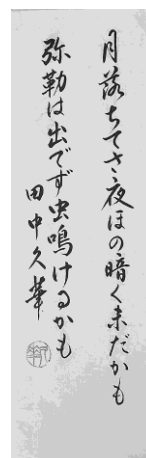 月落ちてさ夜ほの暗く未だかも
弥勒は出でず虫鳴けるかも
田中久華